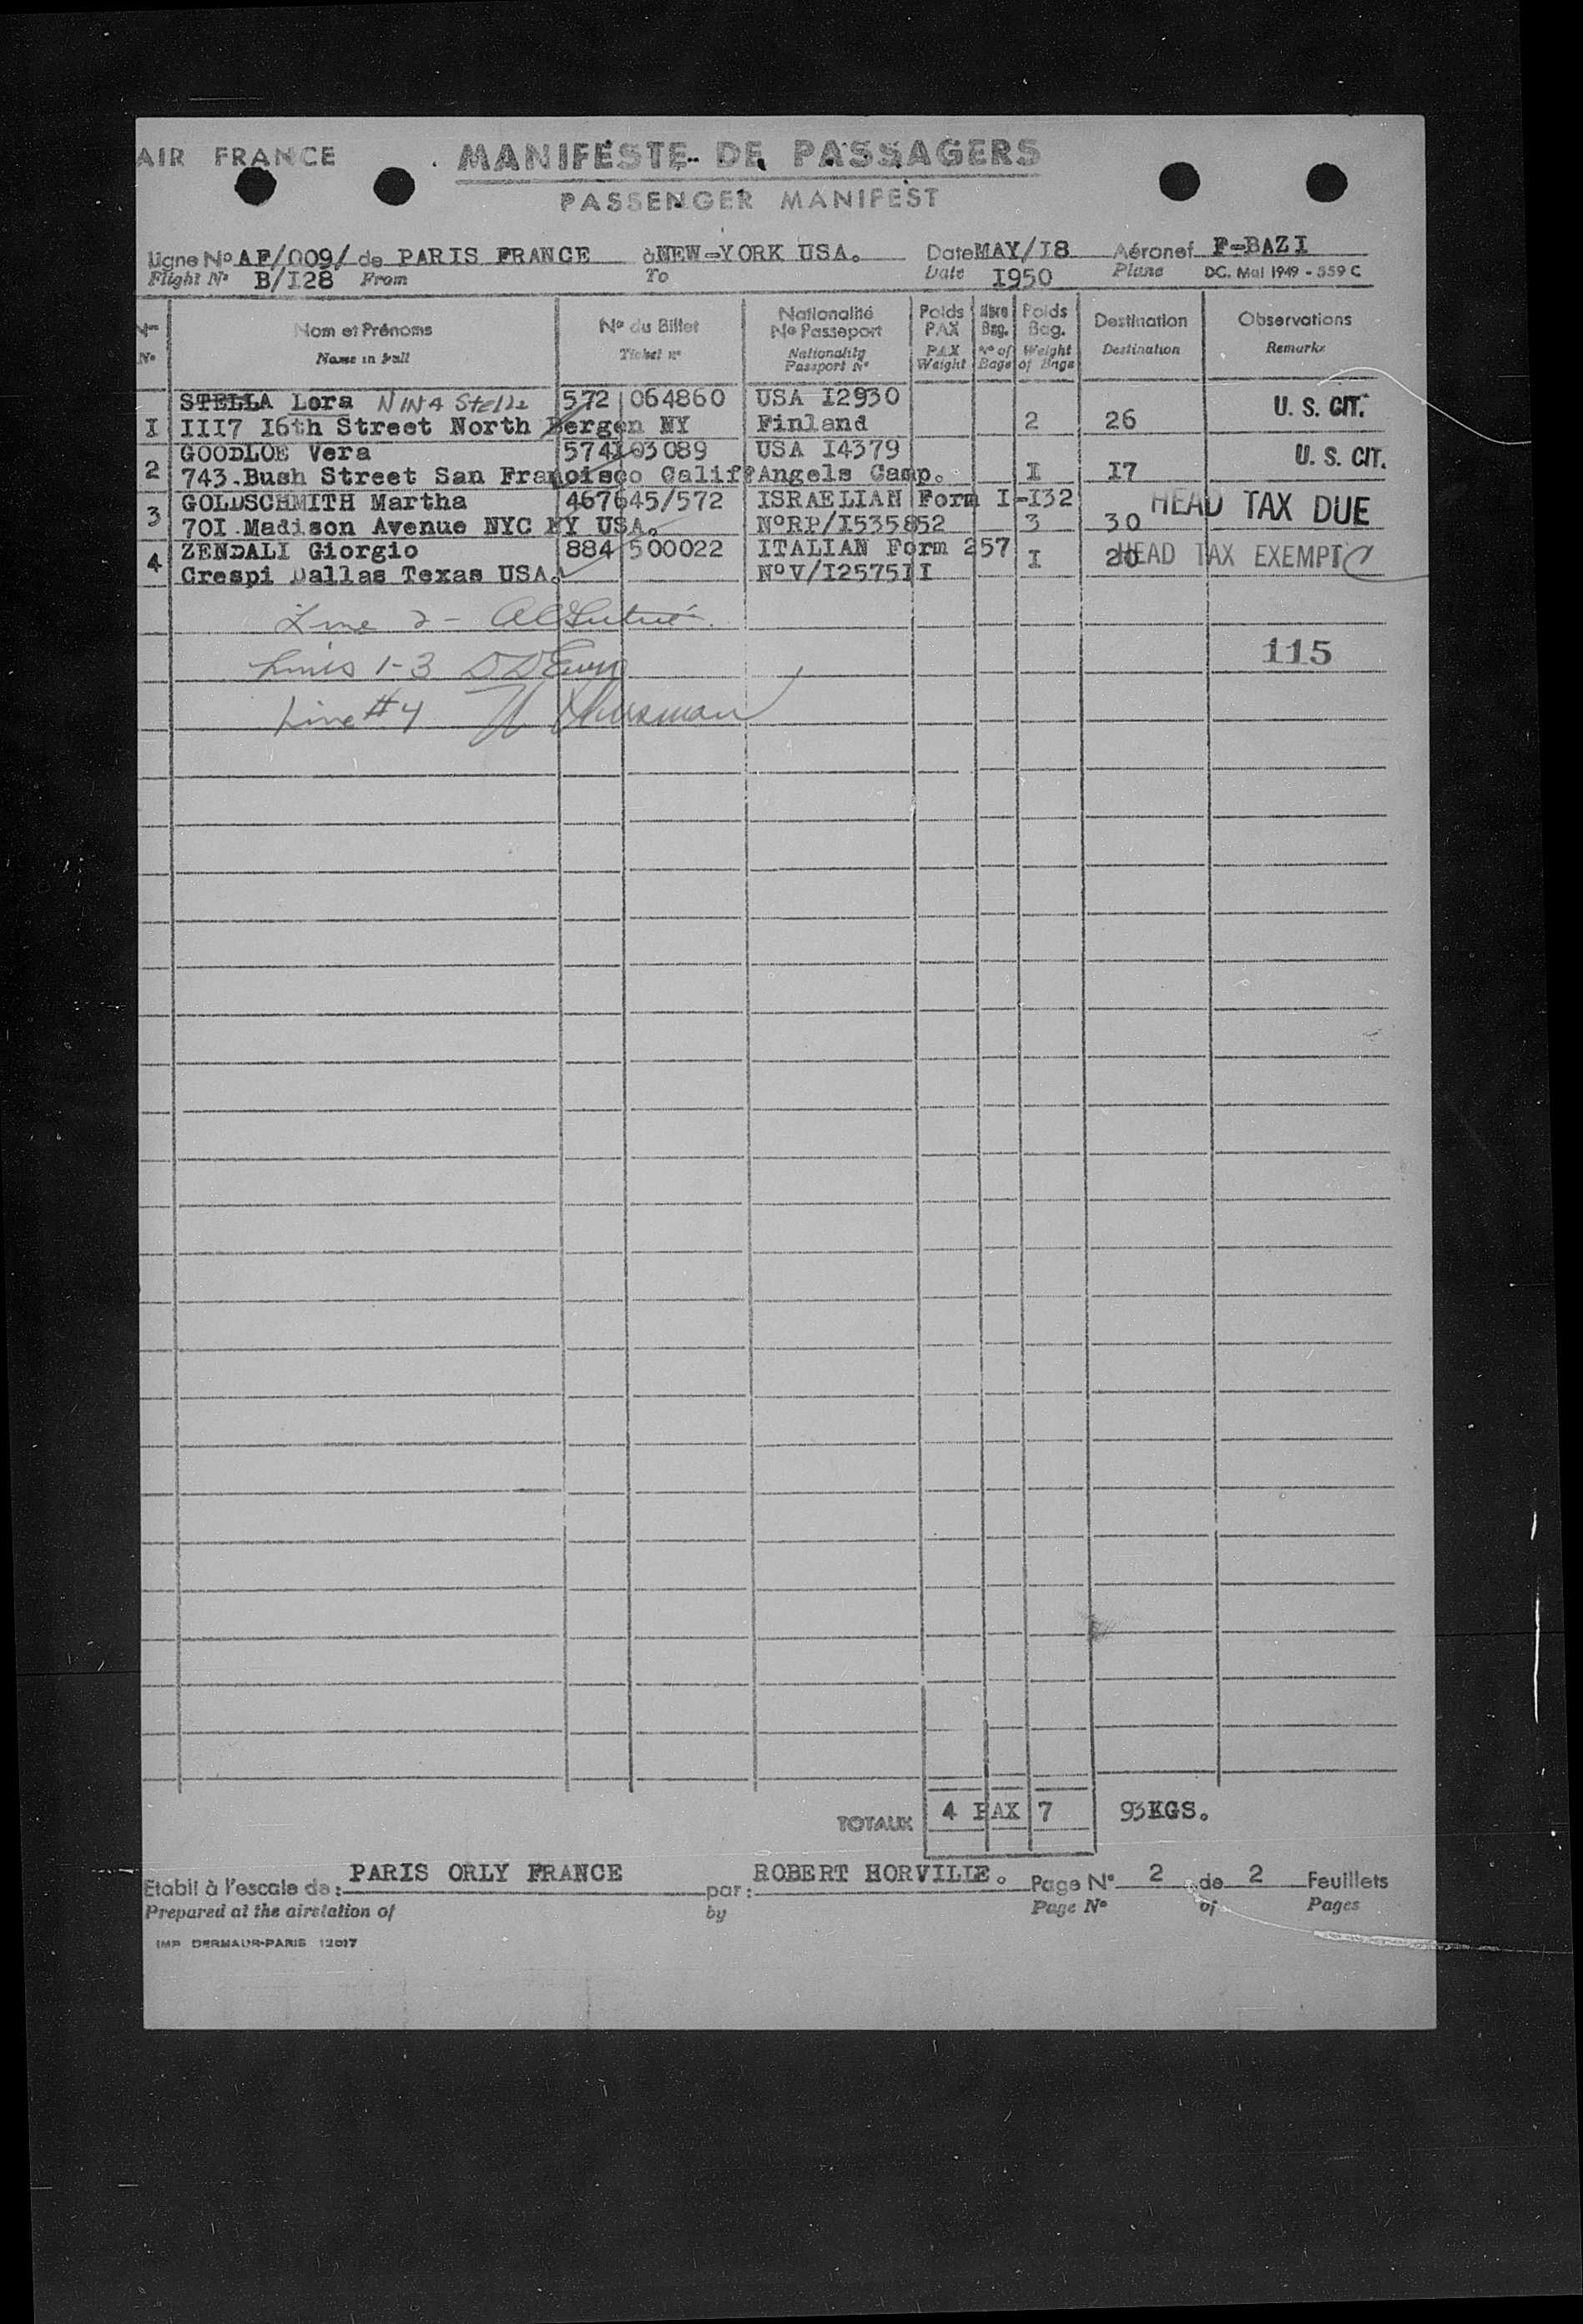 AIR FRANCE
MANIFESTE DE PASSAGERS
PASSENGER MANIFEST
Ligne No AF/009/ de PARIS FRANCE à NEW-YORK USA. Date MAY/I8 Aéronef F-BAZI
Flight No B/I28 From To Date I950 Plane DC. Mai 1949 - 559 C
No Nom et Prénoms No du Billet Nationalité No Passeport Poids PAX Nbre Bag. Poids Bag. Destination Observations
No Name in full Ticket no Nationality Passport No PAX Weight No of Bags Weight of Bags Destination Remarks
STELLA Lora NINA Stella 572 064860 USA I2930 U. S. CIT.
I III7 I6th Street North Bergen NY Finland 2 26
GOODLOE Vera 574103089 USA I4379 U. S. CIT.
2 743.Bush Street San Francisco Calif Angels Camp. I I7
GOLDSCHMITH Martha 467645/572 ISRAELIAN Form I-I32 HEAD TAX DUE
3 70I.Madison Avenue NYC NY USA. NoRP/I535852 3 30
ZENDALI Giorgio 884 500022 ITALIAN Form 257 HEAD TAX EXEMPT
4 Crespi Dallas Texas USA. NoV/I2575II I 20
Line 2 -
Lines 1-3
115
Line #4
TOTAUX 4 PAX 7 93KGS.
Etabli à l'escale de: PARIS ORLY FRANCE par: ROBERT HORVILLE. Page No 2 de 2 Feuillets
Prepared at the airstation of by Page No of Pages
IMP DERMAUR-PARIS 12017